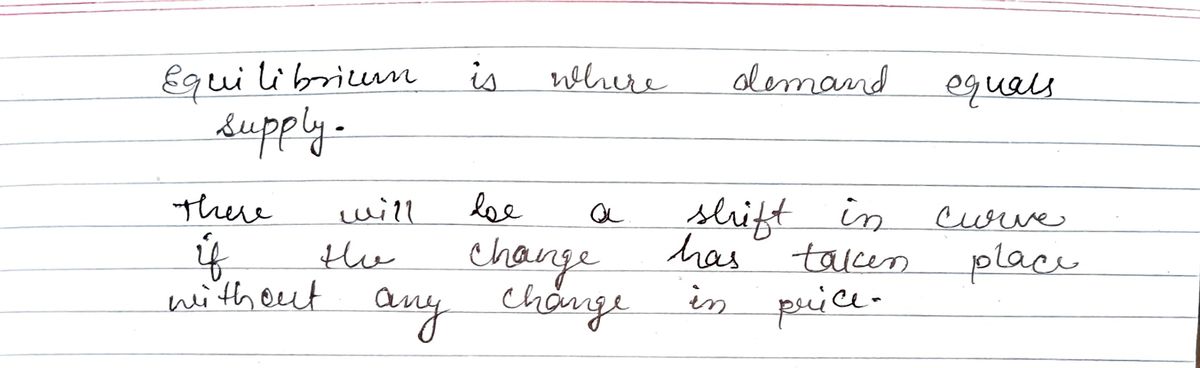 Equilibrium is where demand equals
supply.
There will be a shift in curve
if the change has taken place
without any change in price.